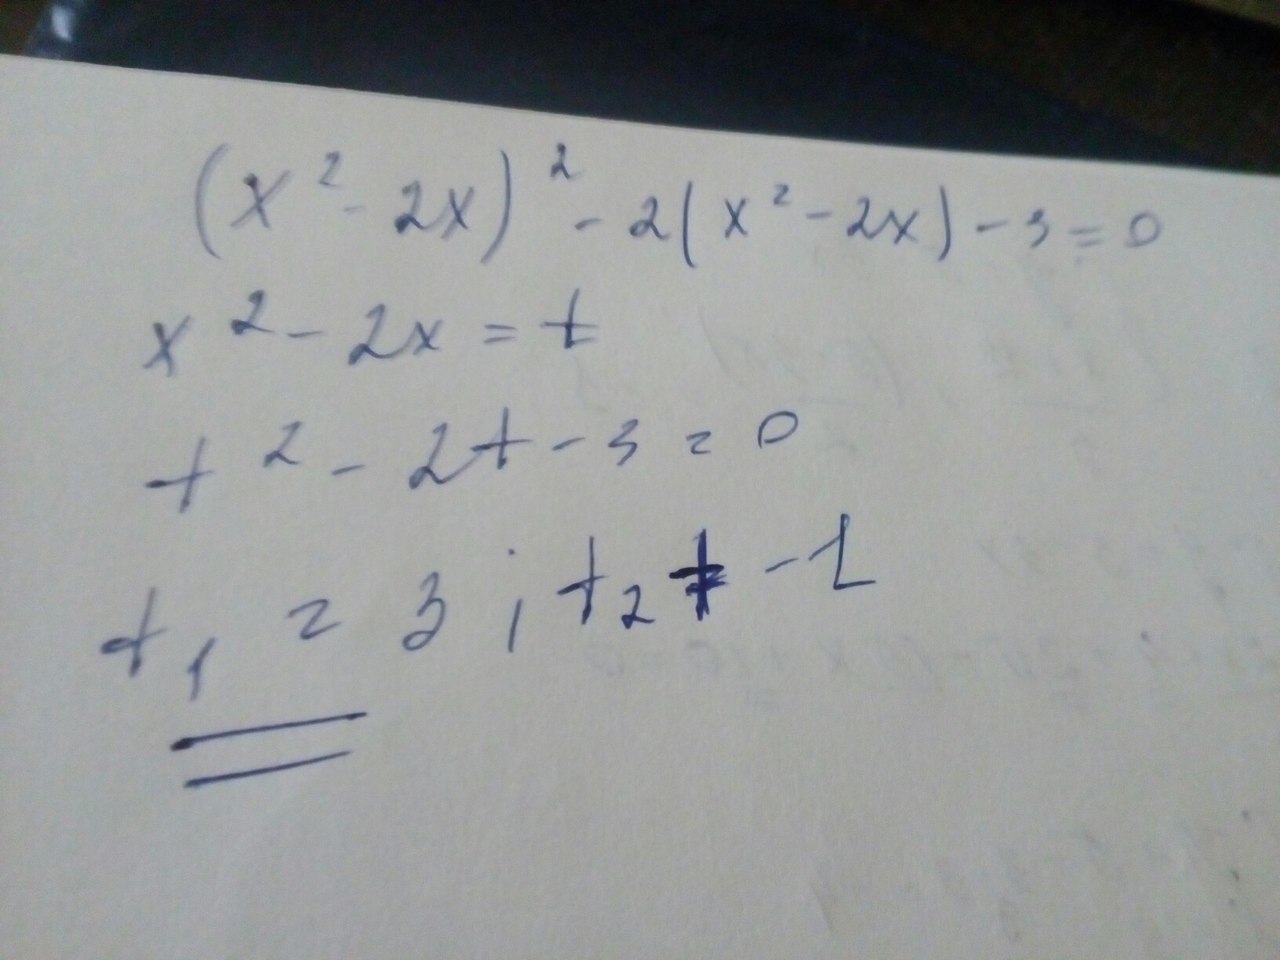 (x² - 2x)² - 2(x² - 2x) - 3 = 0
x² - 2x = t
t² - 2t - 3 = 0
t₁ = 3 ; t₂ = -1